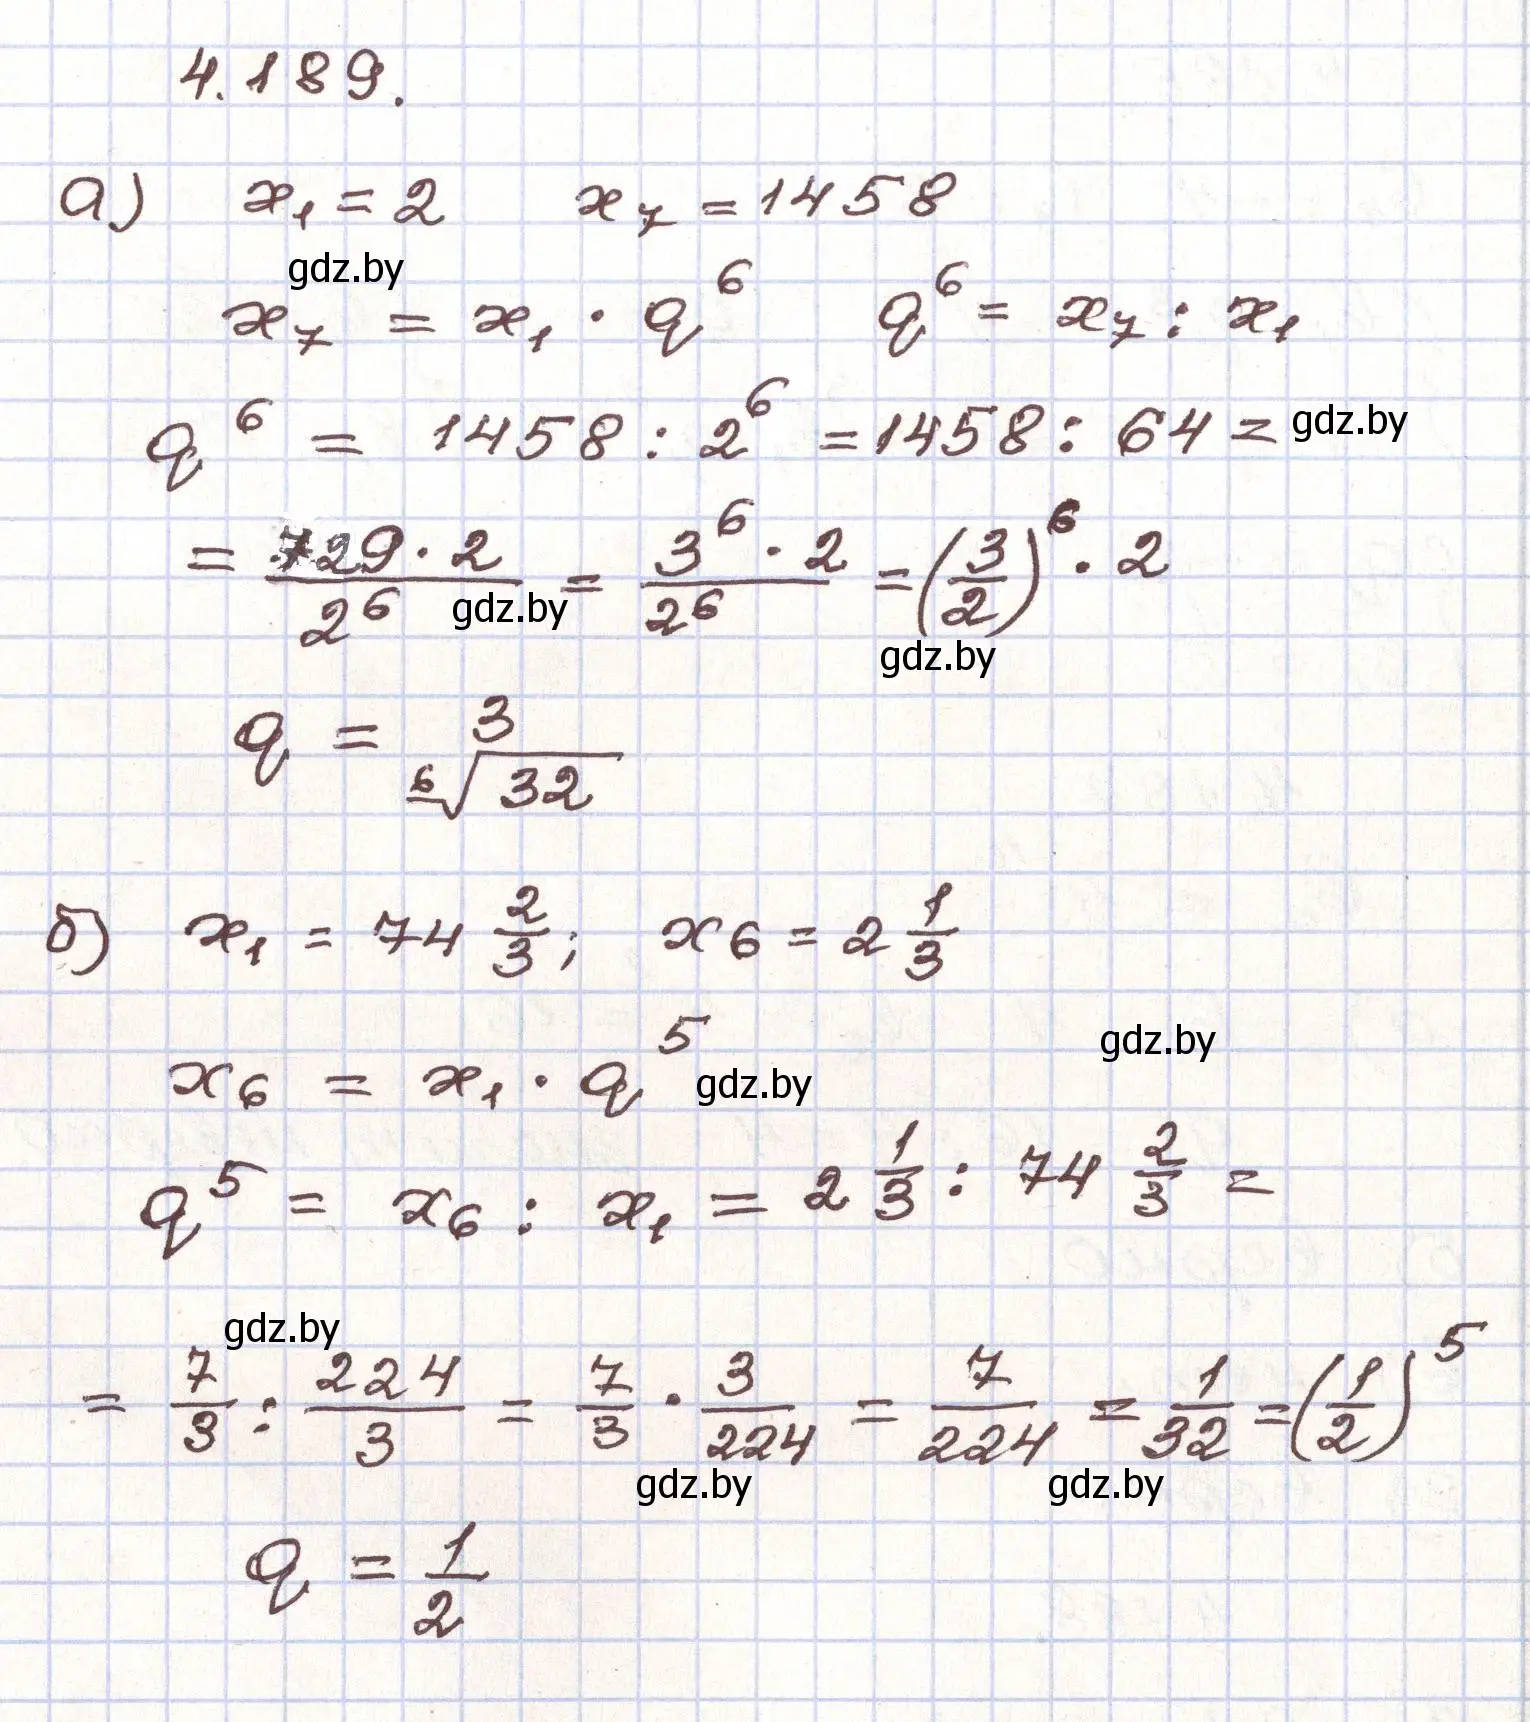 4.189.
а) x₁ = 2   x₇ = 1458
gdz.by
x₇ = x₁ · q⁶   q⁶ = x₇ : x₁
q⁶ = 1458 : 2⁶ = 1458 : 64 = gdz.by
= 729·2/2⁶ = 3⁶·2/2⁶ = (3/2)⁶ · 2
gdz.by
gdz.by
q = 3/⁶√32
б) x₁ = 74 2/3; x₆ = 2 1/3
gdz.by
x₆ = x₁ · q⁵ gdz.by
q⁵ = x₆ : x₁ = 2 1/3 : 74 2/3 =
gdz.by
= 7/3 : 224/3 = 7/3 · 3/224 = 7/224 = 1/32 = (1/2)⁵
gdz.by gdz.by
q = 1/2